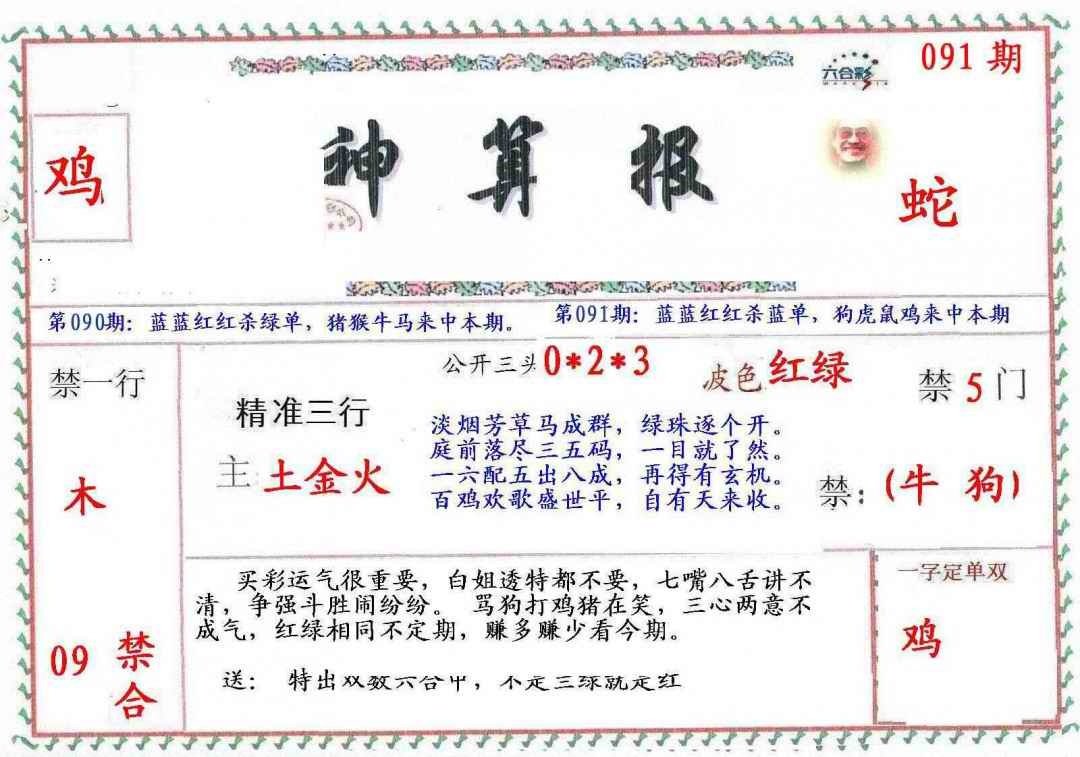 六合彩
091期
鸡
神算报
蛇
第090期：蓝蓝红红杀绿单，猪猴牛马来中本期。
第091期：蓝蓝红红杀蓝单，狗虎鼠鸡来中本期
禁一行
木
09 禁合
公开三头0*2*3
波色 红绿
禁5门
精准三行
主 土金火
淡烟芳草马成群，绿珠逐个开。
庭前落尽三五码，一目就了然。
一六配五出八成，再得有玄机。
百鸡欢歌盛世平，自有天来收。
禁：(牛 狗)
买彩运气很重要，白姐透特都不要，七嘴八舌讲不
清，争强斗胜闹纷纷。 骂狗打鸡猪在笑，三心两意不
成气，红绿相同不定期，赚多赚少看今期。
送： 特出双数六合中，不是三绿就是红
一字定单双
鸡